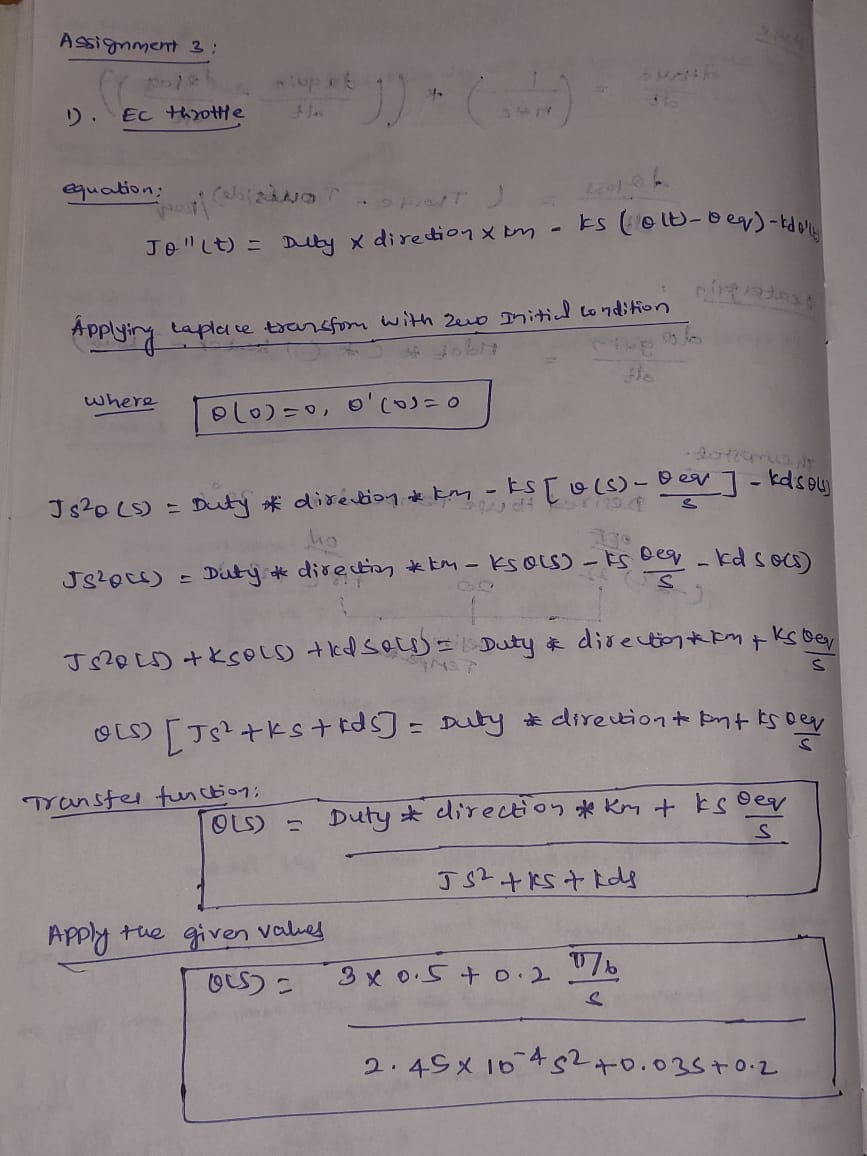 Assignment 3:
1). EC throttle
equation:
Jθ''(t) = Duty x direction x km - ks (θ(t) - θeq) - kdθ'(t)
Applying Laplace transfom with Zero Initial condition
where θ(0)=0, θ'(0)=0
Js²θ(s) = Duty * direction * km - ks [θ(s) - θeq/s] - kdsθ(s)
Js²θ(s) = Duty * direction * km - ksθ(s) - ks θeq/s - kd sθ(s)
Js²θ(s) + ksθ(s) + kd sθ(s) = Duty * direction * km + ks θeq/s
θ(s) [Js² + ks + kds] = Duty * direction * km + ks θeq/s
Transfer function:
θ(s) = Duty * direction * km + ks θeq/s
Js² + ks + kds
Apply the given values
θ(s) = 3 x 0.5 + 0.2 π/6/s
2.45 x 10⁻⁴ s² + 0.03s + 0.2